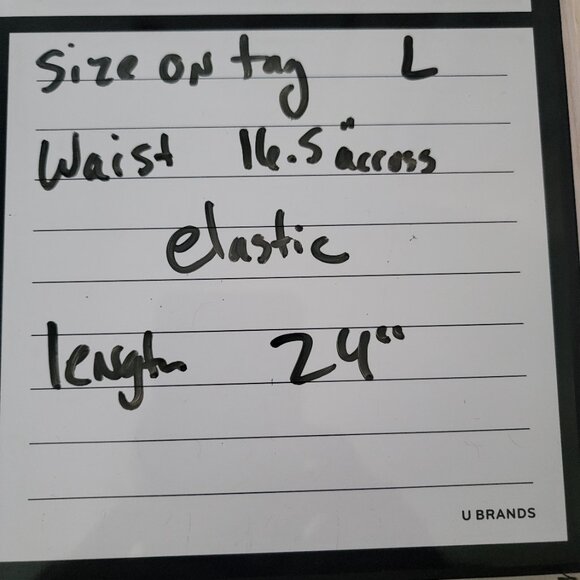 Size on tag L
Waist 16.5" across
elastic
length 24"
U BRANDS